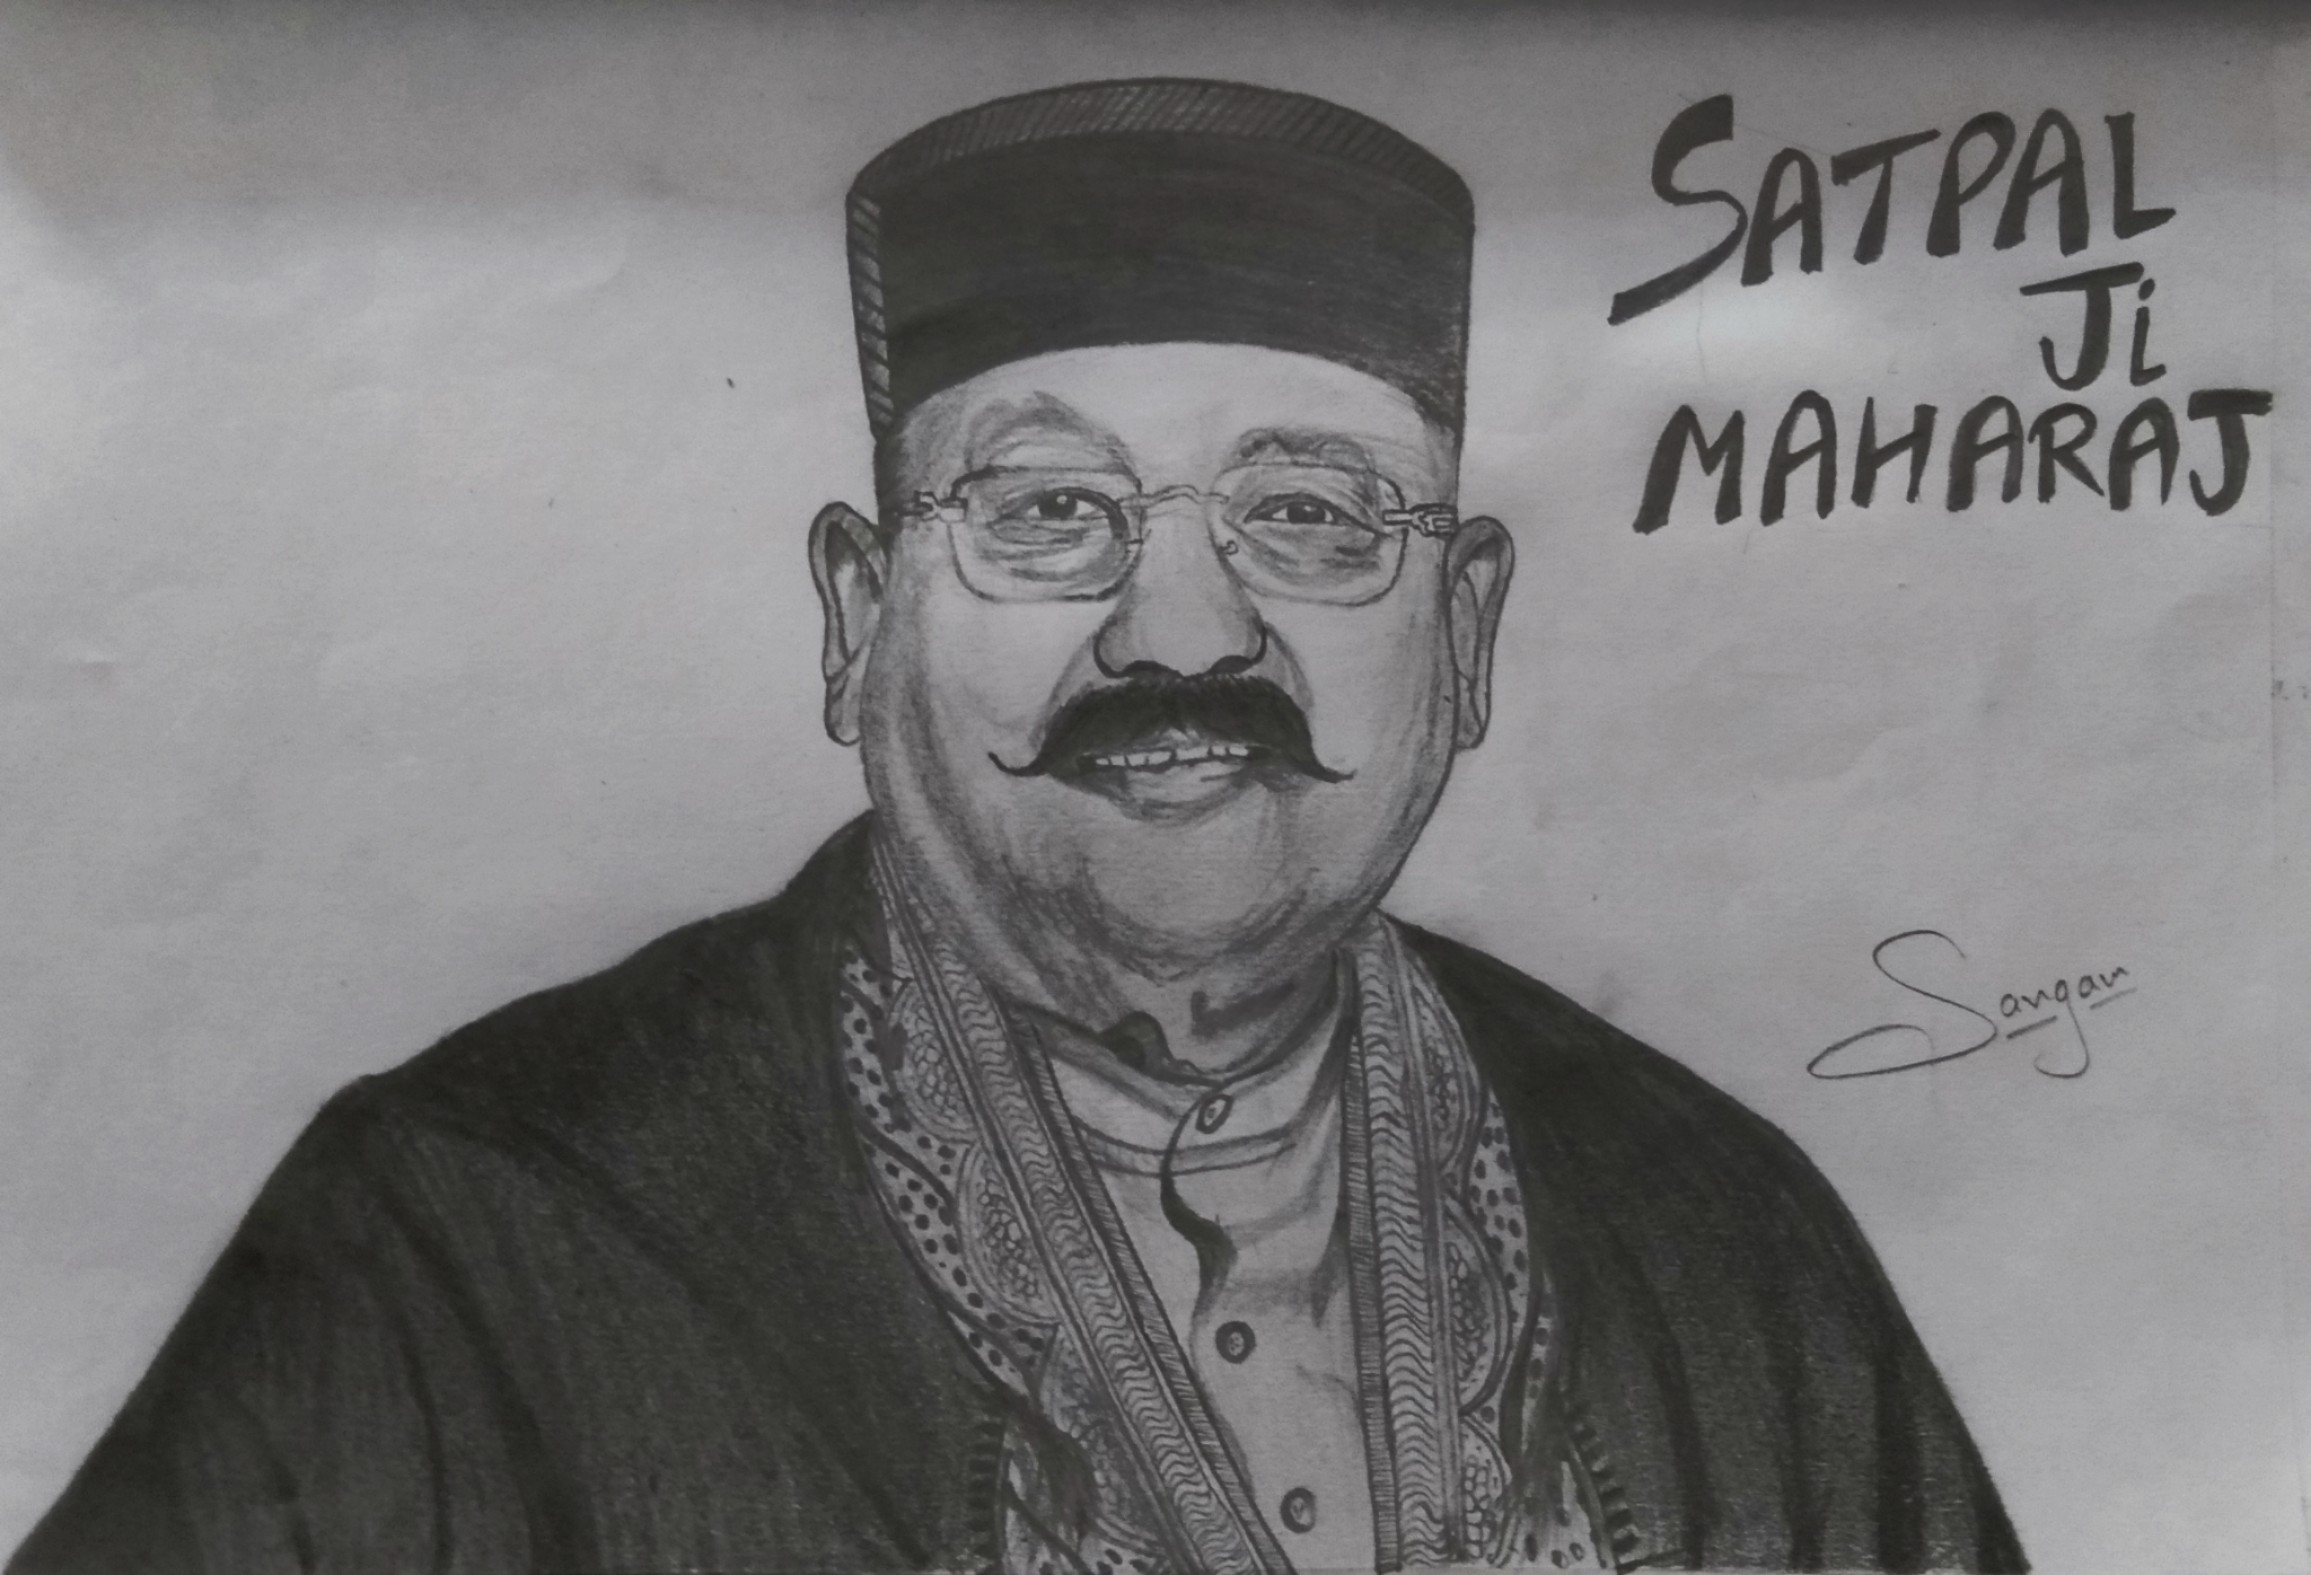 SATPAL
Ji
MAHARAJ
Sangam